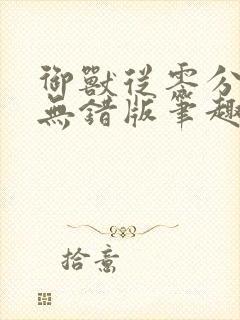 御獸從零分
無錯版筆趣
拾意